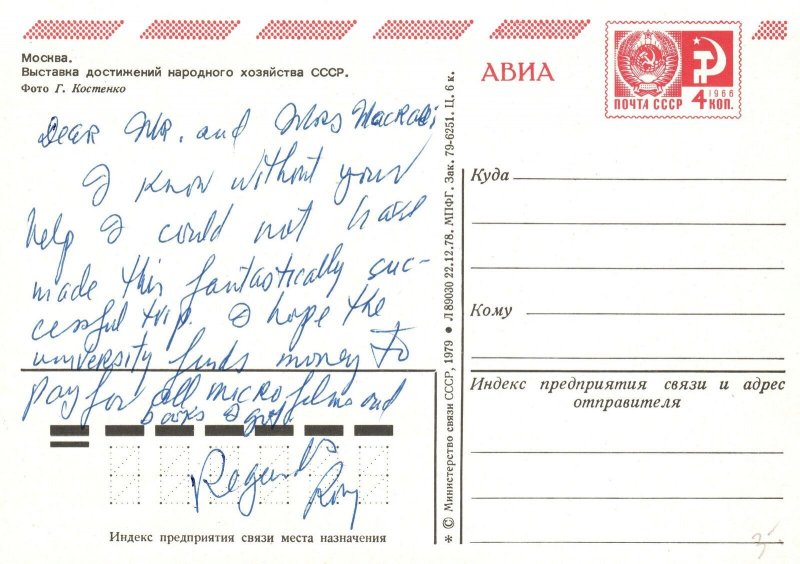 Москва.
Выставка достижений народного хозяйства СССР.
Фото Г. Костенко
Dear Mr. and Mrs
I know without your
help I could not have
made this fantastically suc-
cessful trip. I hope the
university finds money to
pay for all microfilms and
books I got.
Regards
АВИА
ПОЧТА СССР
1966
4 КОП.
Куда
Кому
Индекс предприятия связи и адрес
отправителя
Индекс предприятия связи места назначения
* © Министерство связи СССР, 1979 ● Л 89030 22.12.78. МПФГ. Зак. 79-6251. Ц. 6 к.
3-